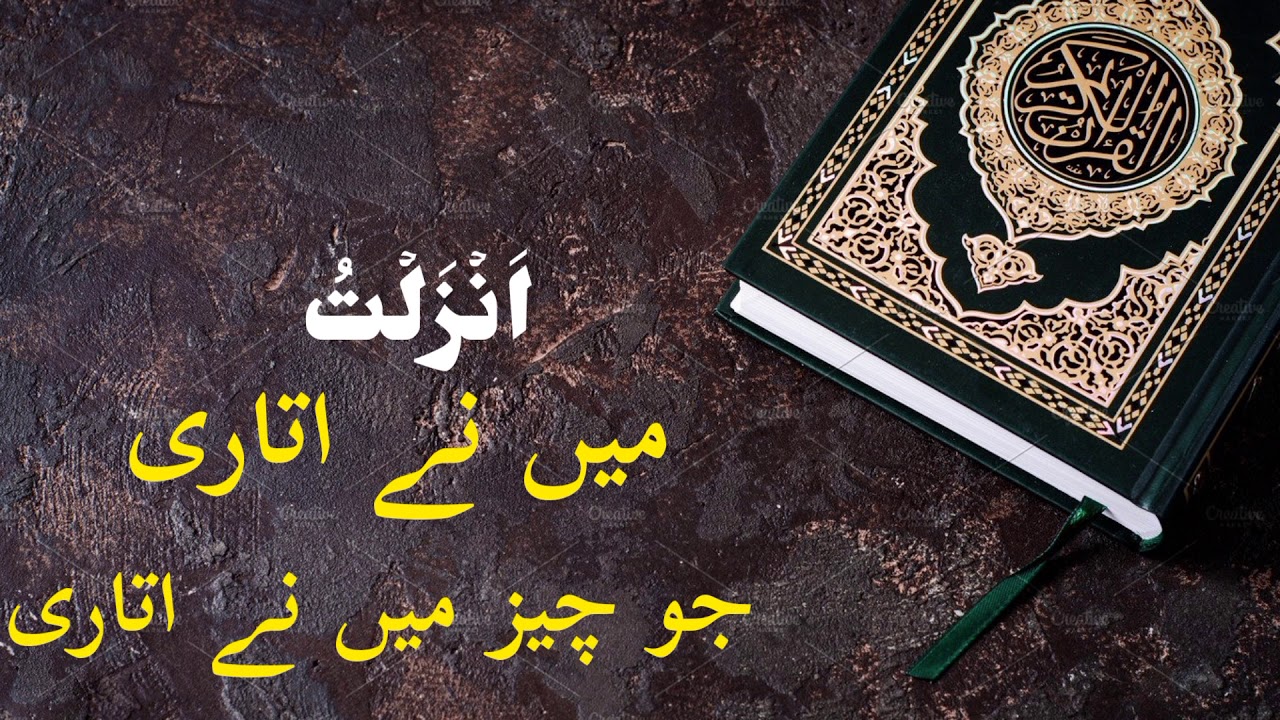 القرآن الكريم
اَنۡزَلۡتُ
میں نے اتاری
جو چیز میں نے اتاری